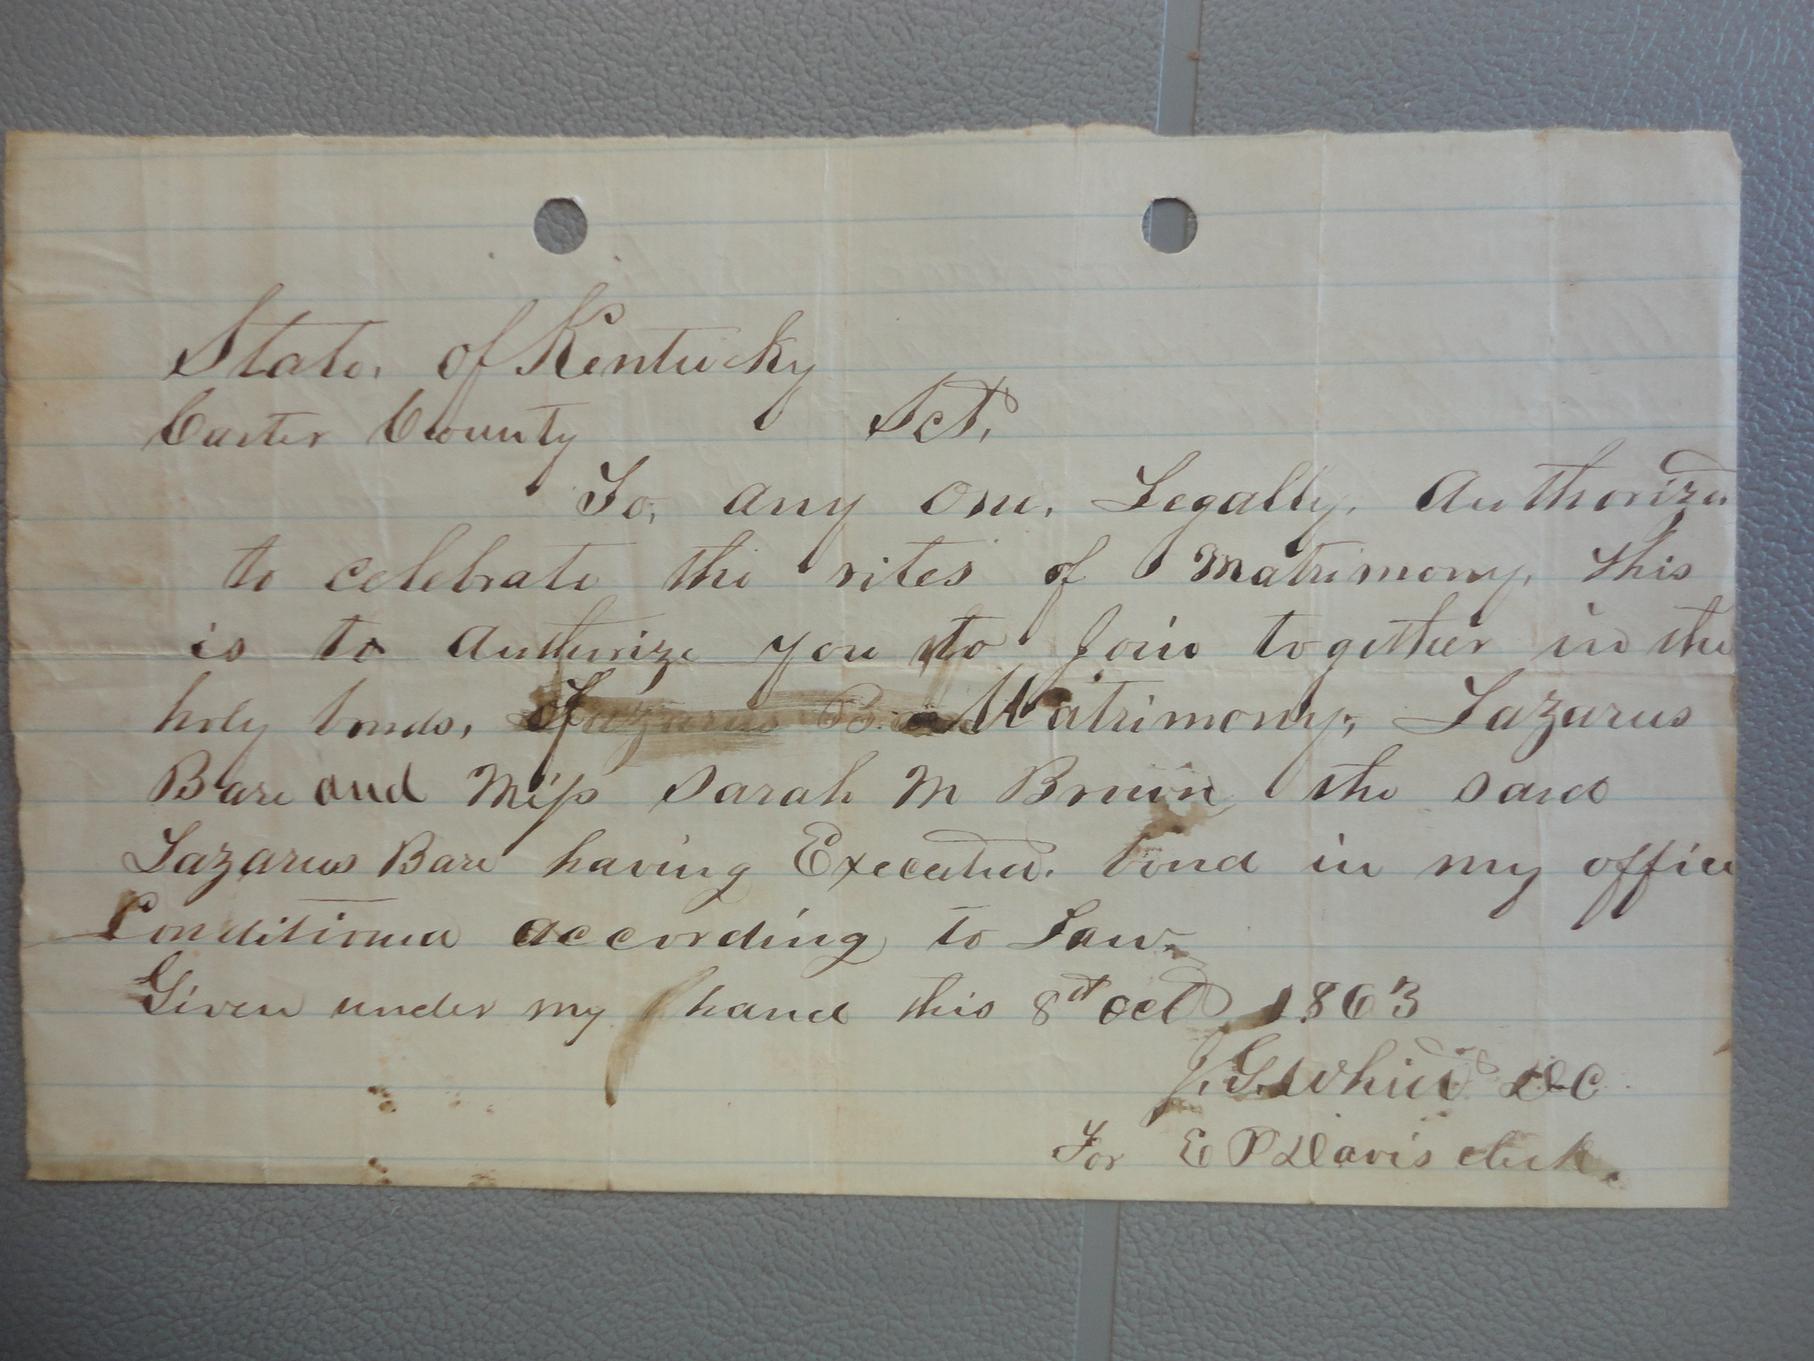 State, of Kentucky
Carter County Sct,
To, any One, Legally, Authorized
to celebrate the rites of Matrimony, this
is to Autherize you to Join together in the
holy bonds, of Matrimony, Lazarus
Bare and Miss Sarah M the said
Lazarus Bare having Executed. bond in my office
Conditioned according to Law.
Given under my hand this 8th Oct 1863
J. G. DC
For E P Davis clerk.